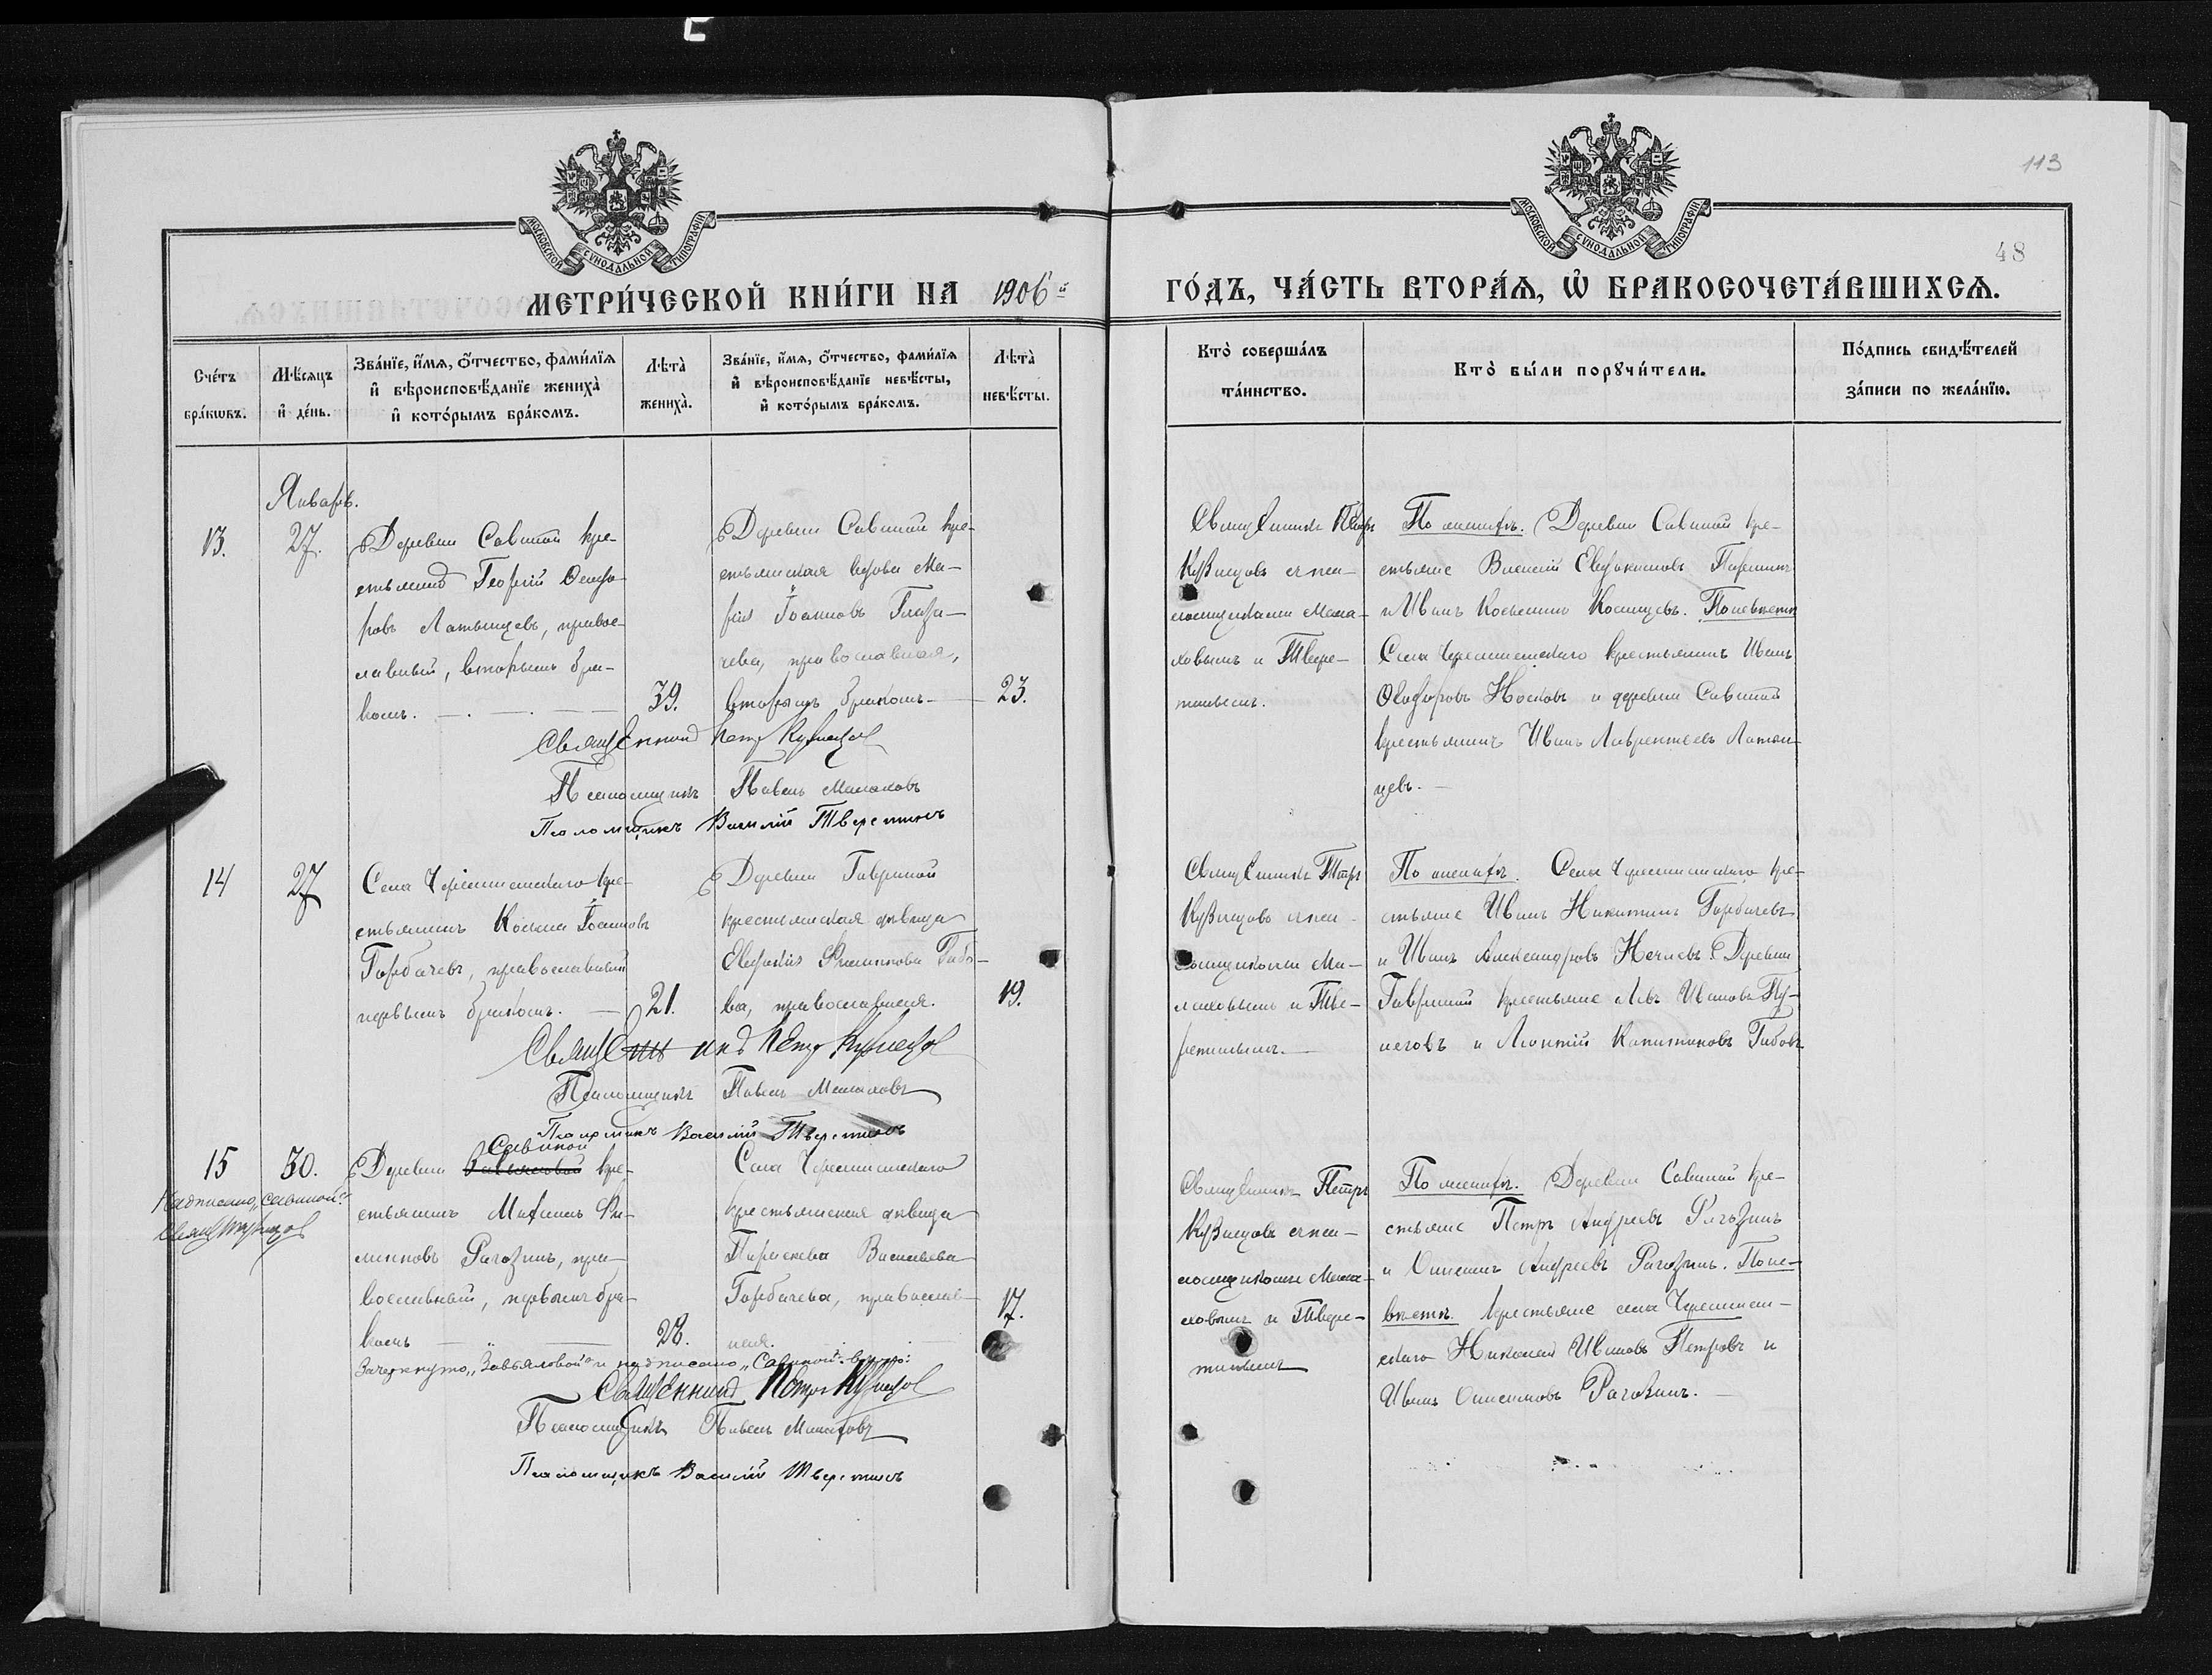 113
48
МОСКОВСКОЙ СѴНОДАЛЬНОЙ ТИПОГРАФІИ
МОСКОВСКОЙ СѴНОДАЛЬНОЙ ТИПОГРАФІИ
МЕТРИ́ЧЕСКОЙ КНИ́ГИ НА 1906й ГО́ДЪ, ЧА́СТЬ ВТОРА́Ѧ, Ѽ БРАКОСОЧЕТА́ВШИХСѦ.
Сче́тъ бра́кѡвъ.
Мѣ́сѧцъ и҆ де́нь.
Зва́нїе, и҆́мѧ, ѻ҆́тчество, фами́лїѧ и҆ вѣроисповѣ́данїе жениха̀ и҆ кото́рымъ бра́комъ.
Лѣта̀ жениха̀.
Зва́нїе, и҆́мѧ, ѻ҆́тчество, фами́лїѧ и҆ вѣроисповѣ́данїе невѣ́сты, и҆ кото́рымъ бра́комъ.
Лѣта̀ невѣ́сты.
Кто̀ соверша́лъ та́инство.
Кто̀ бы́ли порꙋчи́тели.
По́дпись свидѣ́телей за́писи по жела́нїю.
Январь.
13.
27.
Деревни Савиной кре-
стьянинъ Георгій Ѳеодо-
ровъ Латынцевъ, правос-
лавный, вторымъ бра-
комъ.
39.
Деревни Савиной кре-
стьянская вдова Ма-
рія Іоаннова Глаза-
чева, православная,
вторымъ бракомъ
23.
Священникъ Петръ
Кузнецовъ с пса-
ломщиками Мала-
ховымъ и Твере-
тинымъ.
По женихѣ. Деревни Савиной кре-
стьяне Василій Евдокимовъ
и Иванъ Косьминъ. По невѣстѣ
Села Черемшанскаго крестьянинъ Иванъ
Ѳеодоровъ Носковъ и деревни Савиной
крестьянинъ Иванъ Лаврентьевъ Латын-
цевъ.
Священникъ Петръ Кузнецов
Псаломщикъ Павелъ Малаховъ
Псаломщикъ Василій Тверетинъ
14
27
Села Черемшанскаго кре-
стьянинъ Косьма Іоанновъ
Горбачевъ, православный
первымъ бракомъ.
21.
Деревни Гавриной
крестьянская дѣвица
Евдокія Филиппова Габо-
ва, православная.
19.
Священникъ Петръ
Кузнецовъ с пса-
ломщиками Ма-
лаховымъ и Тве-
ретинымъ.
По женихѣ. Села Черемшанскаго кре-
стьяне Иванъ Никитинъ Горбачевъ
и Иванъ Александровъ Нечаевъ. Деревни
Гавриной крестьяне Левъ Ивановъ
и Леонтій Капитоновъ Габовъ
Священникъ Петръ Кузнецов
Псаломщикъ Павелъ Малаховъ
Псаломщикъ Василій Тверетинъ
15
30.
Надписано „Савиной":
Савиной
Деревни Завьяловой кре-
стьянинъ Максимъ Фи-
липповъ Рагозинъ, пра-
вославный, первымъ бра-
комъ
28.
Села Черемшанскаго
крестьянская дѣвица
Параскева Васильева
Горбачева, православ-
ная.
17.
Священникъ Петръ
Кузнецовъ с пса-
ломщиками Мала-
ховымъ и Твере-
тинымъ
По женихѣ. Деревни Савиной кре-
стьяне Петръ Андреевъ Рагозинъ
и Онисимъ Андреевъ Рагозинъ. По не-
вѣстѣ. Крестьяне села Черемшан-
скаго Николай Ивановъ Петровъ и
Иванъ Онисимовъ Рагозинъ.
Зачеркнуто „Завьяловой" и надписано „Савиной"
Священникъ Петръ Кузнецов
Псаломщикъ Павелъ Малаховъ
Псаломщикъ Василій Тверетинъ